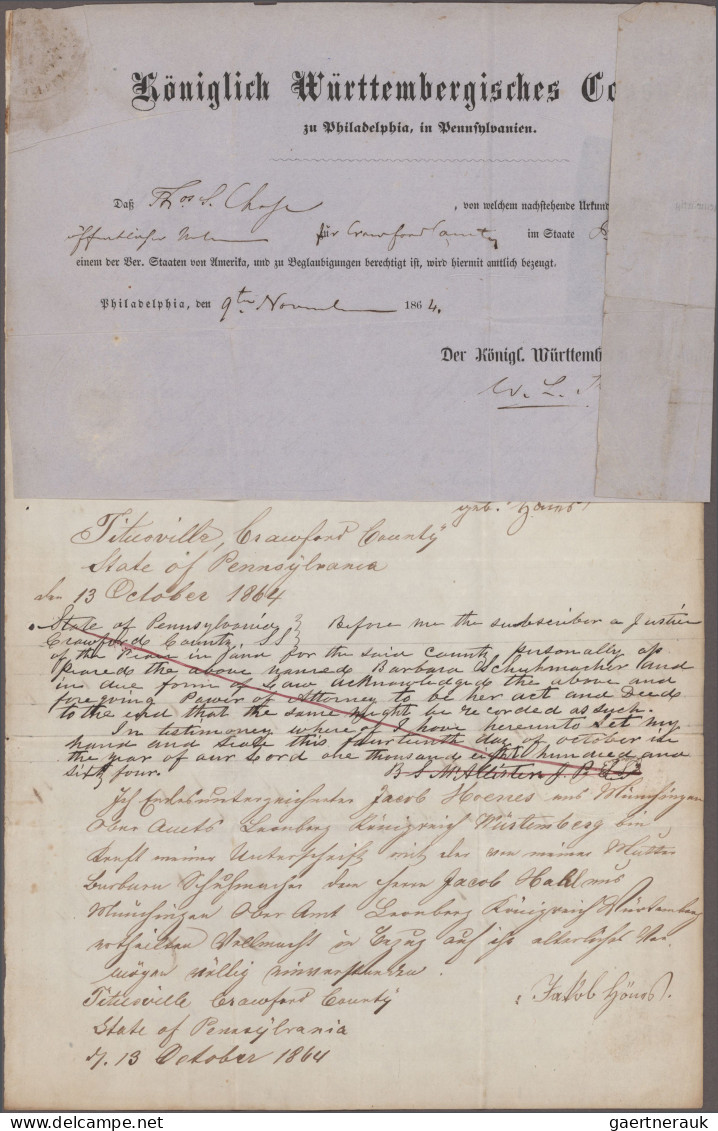 Königlich Württembergisches Co
zu Philadelphia, in Pennsylvanien.
Daß Thos S. Chase , von welchem nachstehende Urkund
öffentlicher für Crawford County im Staate
einem der Ver. Staaten von Amerika, und zu Beglaubigungen berechtigt ist, wird hiermit amtlich bezeugt.
Philadelphia, den 9ten November 1864.
Der Königl. Württemb
W. L.
geb. Höns
Titusville, Crawford County
State of Pennsylvania
den 13 October 1864
State of Pennsylvania } Before me the subscriber a Justice
Crawford County SS }
of the Peace in and for the said County personally ap
peared the above named Barbara Schuhmacher and
in due form of Law acknowledged the above and
foregoing Power of Attorney to be her act and Deed
to the end that the same might be recorded as such.
In testimony where of I have hereunto Set my
hand and Seale this fourteenth day of october in
the year of our Lord one thousand eight hundred and
sixty four. B S McAlister J P
Ich Endesunterzeichneter Jacob Hoenes aus Münchingen
Ober Amts Leonberg Königreich Würtemberg bin
Kraft meiner Unterschrift mit der von meiner Mutter
Barbara Schuhmacher dem Herrn Jacob Hahl aus
Münchingen Ober Amt Leonberg Königreich Würtemberg
ertheilten Vollmacht in Bezug auf ihr alterliches Ver
mögen völlig einverstanden.
Titusville Crawford County Jakob Höns.
State of Pennsylvania
d. 13 October 1864
gaertnerauk